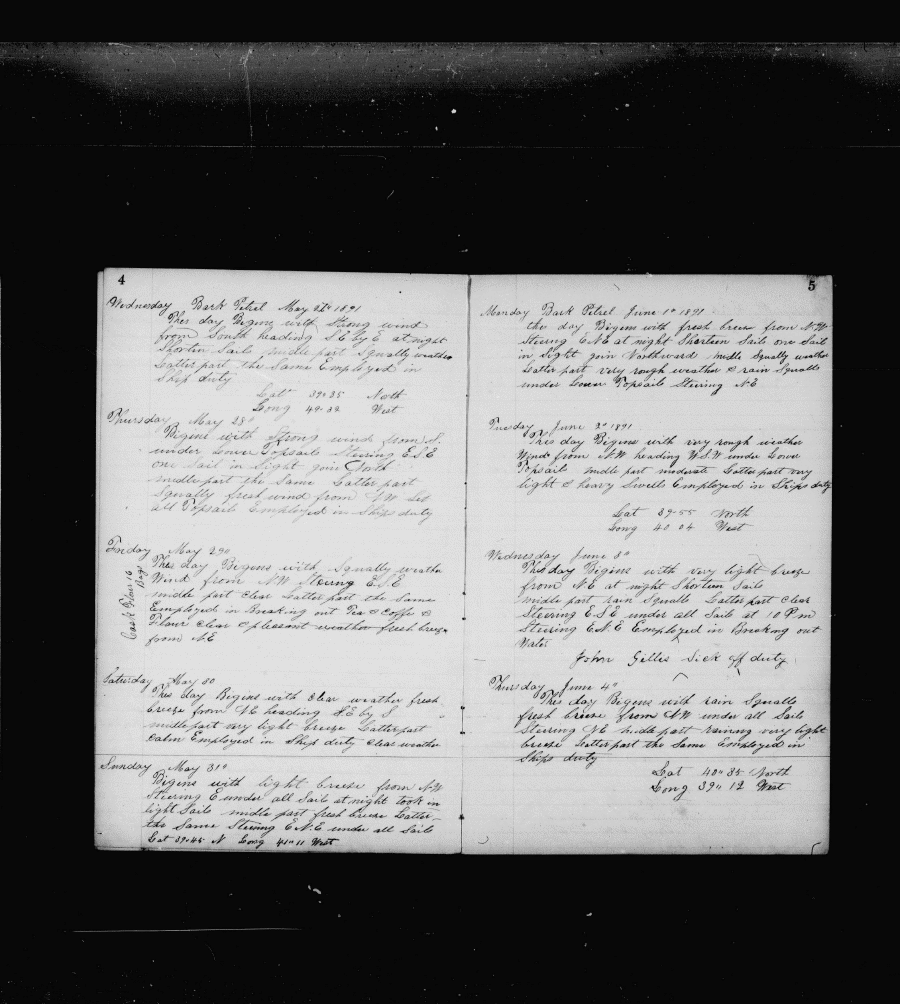 4
Wednesday Bark Petrel May 27th 1891
This day Bigens with Strong wind
from South heading S.E by E at night
Shorten Sails middle part Squally weather
Latter part the Same Employed in
Ship duty
Lat 39-35 North
Long 49-32 West
Thursday May 28"
Bigens with Strong wind from S.
under Lower Topsails Steering E.S.E
one Sail in Sight goin North
middle part the Same Latter part
Squally fresh wind from NW Set
all Topsails Employed in Ships duty
Friday May 29"
This day Begens with Squally weather
Wind from NW Steering E.S.E
middle part Clear Latter part the Same
Employed in Breaking out Tea & Coffe &
Flour Clear & plesent weather fresh breeze
from NE
Cask Flour 16
Bags
Saturday May 30
This day Begins with Clear weather fresh
breeze from NE heading S.E by S
middle part very light breeze Latter part
Calm Employed in Ship duty Clear weather
Sunday May 31"
Bigens with light breeze from N.W
Steering E under all Sails at night took in
light Sails middle part fresh breeze Latter
the Same Steering E.N.E under all Sails
Lat 39-45 N Long 41" 11 West
5
Monday Bark Petrel June 1" 1891
this day Bigens with fresh breeze from N.W
Steering E.N.E at night Shorteen Sails one Sail
in Sight goin Northward middle Squally weather
Latter part very rough weather & rain Squalls
under Lower Topsails Steering NE
Tuesday June 2" 1891
This day Bigens with very rough weather
Wind from N.W heading W.S.W under Lower
Topsails middle part moderate Latter part very
light & heavy Swells Employed in Ships duty
Lat 39-55 North
Long 40 04 West
Wednesday June 3"
This day Bigens with very light breeze
from NE at night Shorteen Sails
middle part rain Squalls Latter part Clear
Steering E.S.E under all Sails at 10 P.m
Steering E.N.E Employed in Breaking out
Water
John Gilles Sick off duty
Thursday June 4"
This day Begens with rain Squalls
fresh breeze from N.W under all Sails
Steering NE midle part raining very light
breeze Latter part the Same Employed in
Ships duty
Lat 40" 35 North
Long 39" 12 West